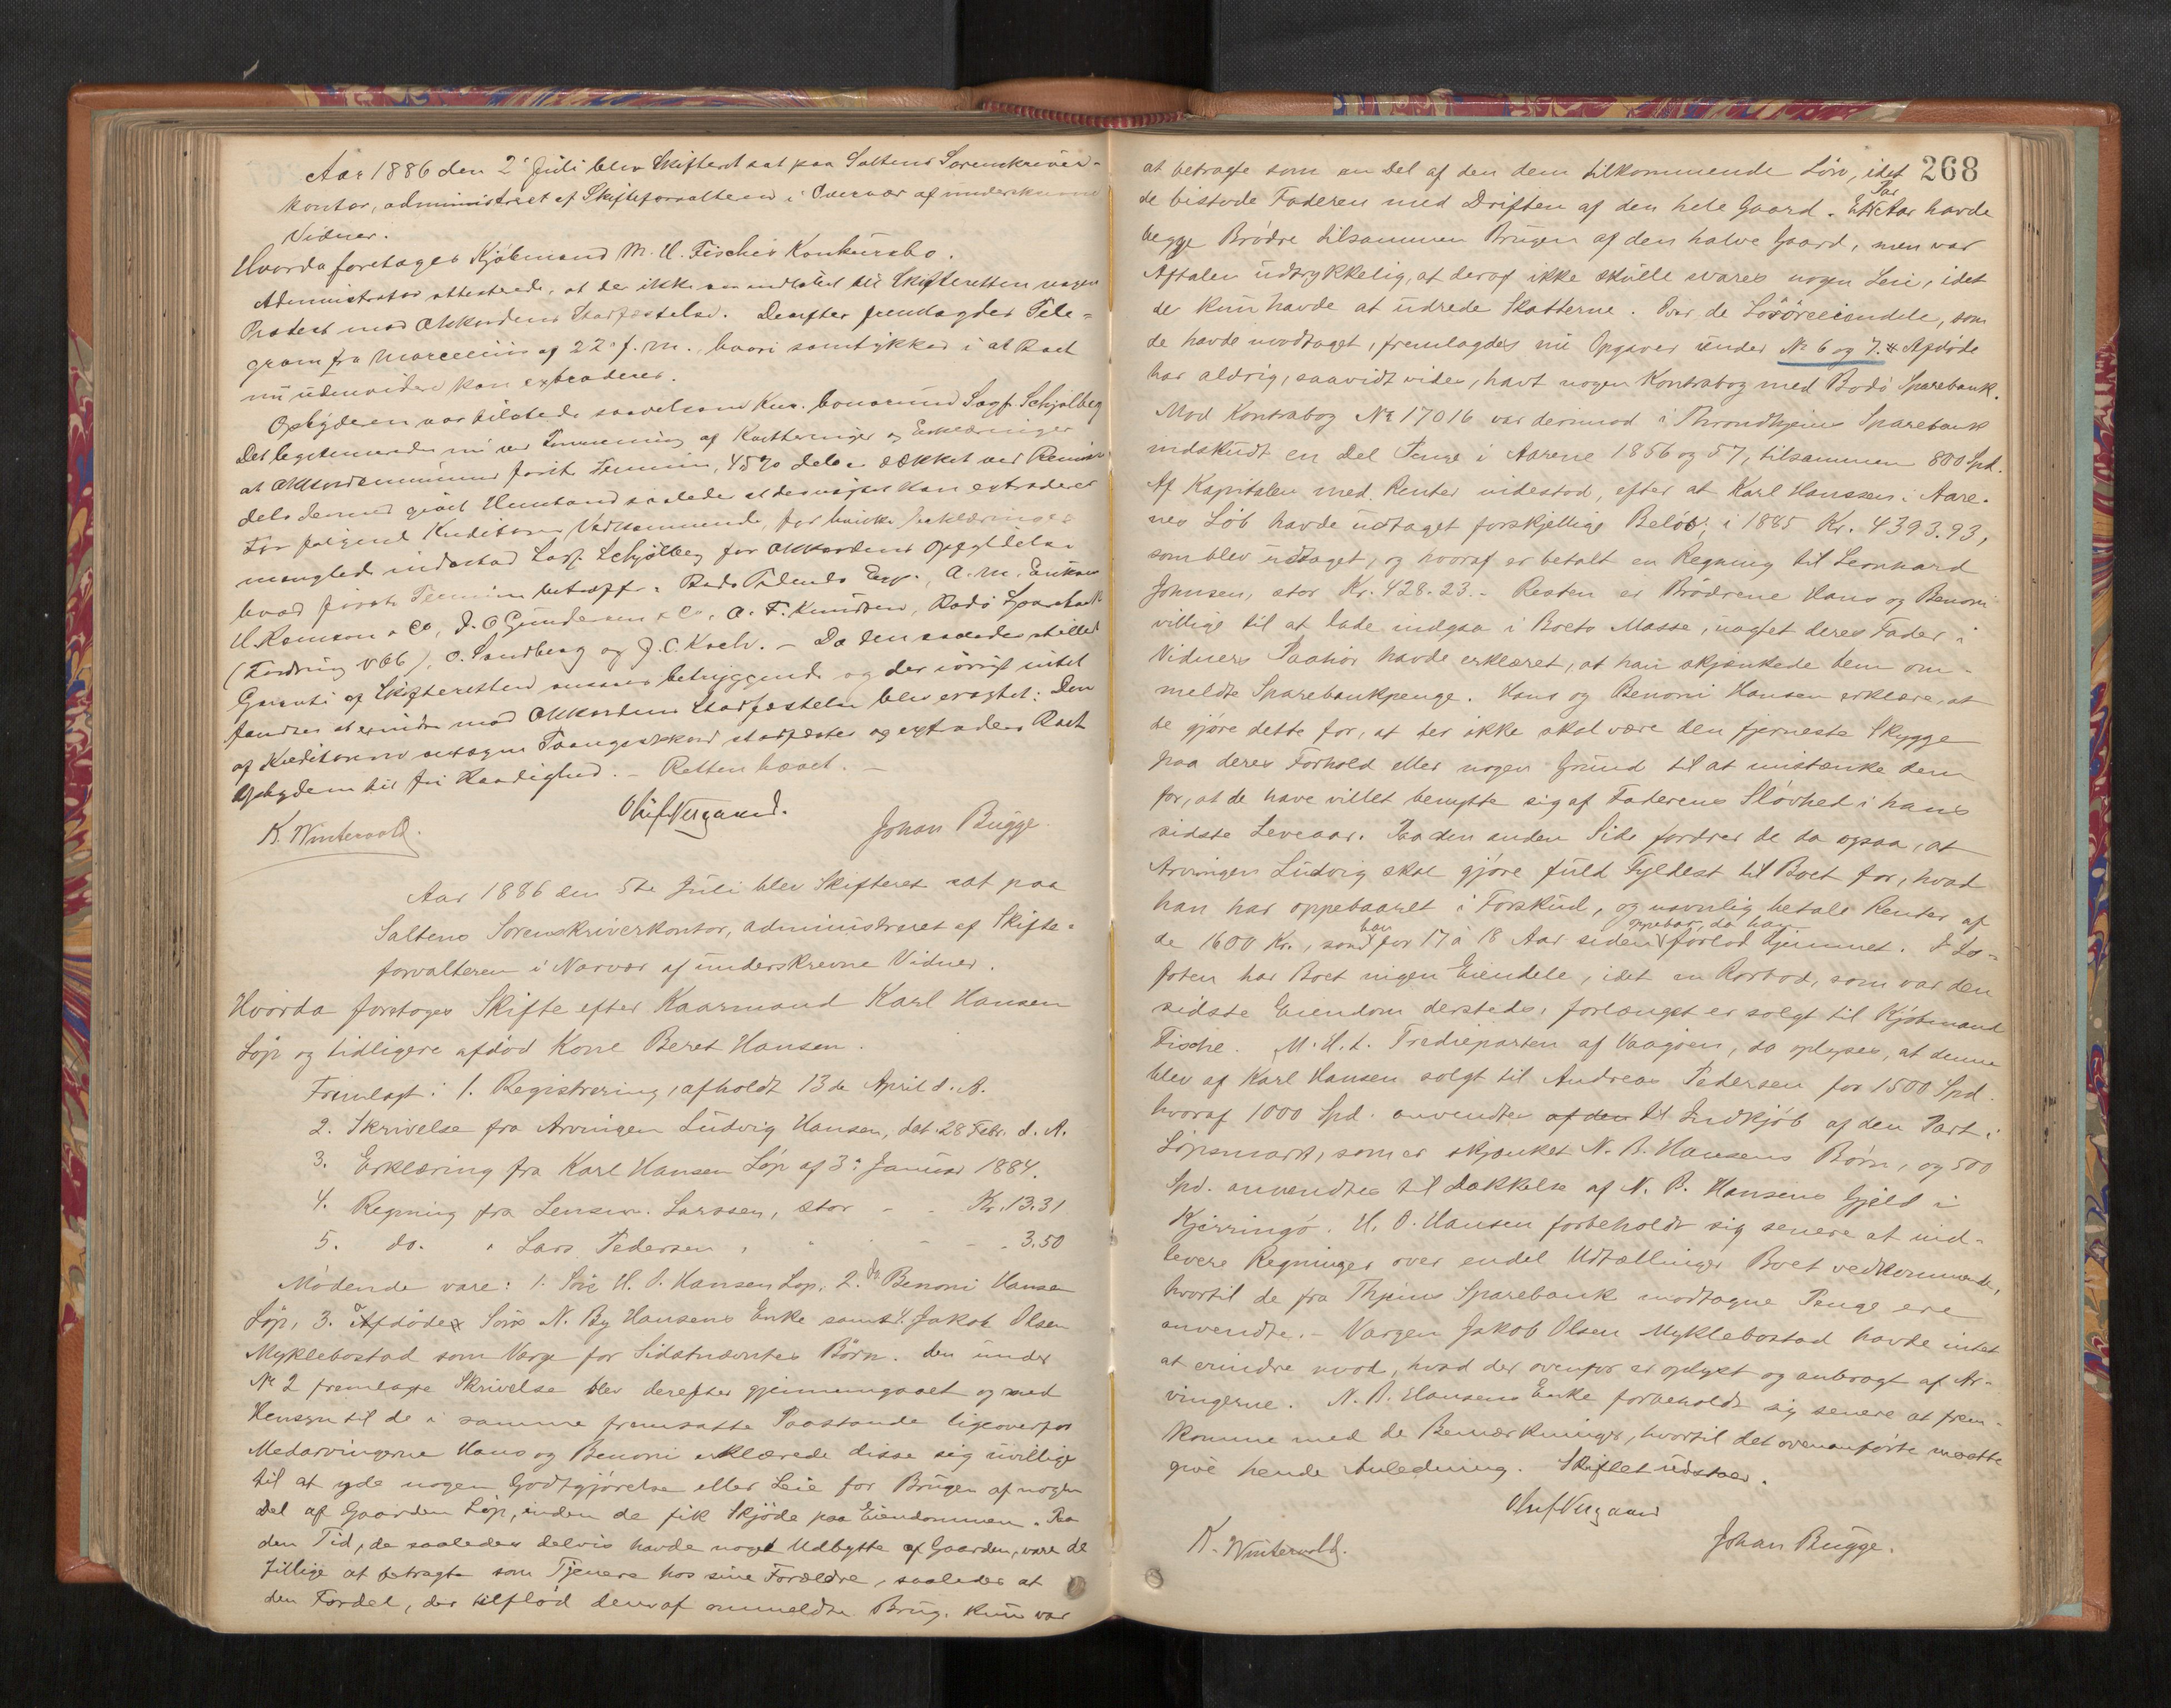 Aar 1886 den 2' Juli blev Skifteret sat paa Saltens Sorenskriver-
kontor, administreret af Skifteforvalteren i Overvær af underskrevne
Vidner.
Hvorda foretages Kjøbmand M. U. Fischers Konkursbo.
Administrator attesterede, at der ikke er indløbet til Skifteretten nogen
Protest mod Akkordens Stadfæstelse. Derefter fremlagdes Tele-
gram fra Marcelius af 22' f. M. hvori samtykkes i at Boet
nu uden videre kan extraderes.
Opbyderen var tilstede saavelsom Kur. bonorum Sagf. Schjølberg
Det legitimeredes nu ved af Kvitteringer og Erklæringer
at Akkordsummens første Termin, 45% dels er dækket ved
dels dermed givet Henstand saaledes at kan extraderes
For følgende Kreditorers Vedkommende, for hvilke Erklæringer
mangled indestod Sagf. Schjølberg for Akkordens Opfyldelse
hvad første Termin betræffer: Bodø Enge., A. M. Eriksen
U. Ramson & Co, J. O. Gundersen & Co, O. F. Knudsen, Bodø Sparebank
(Fordring V 66), O. Sandberg og J. C. Koch. – Da den saaledes stillede
Garanti af Skifteretten ansees betryggende og der iøvrigt intet
fandtes at erindre mod Akkordens Stadfæstelse blev eragtet: Den
af Kreditorerne antagne Tvangsakkord stadfæstes og extraderes Boet
Opbyderen til fri Raadighed. – Retten hævet. –
Oluf Nergaard.
K. Wintervold. Johan Bugge.
Aar 1886 den 5te Juli blev Skifteret sat paa
Saltens Sorenskriverkontor, administreret af Skifte-
forvalteren i Nærvær af underskrevne Vidner.
Hvorda foretoges Skifte efter Kaarmand Karl Hansen
Løp og tidligere afdød Kone Beret Hansen.
Fremlagt: 1. Registrering, afholdt 13de April d. A.
2. Skrivelse fra Arvingen Ludvig Hansen, dat. 28 Febr. d. A.
3. Erklæring fra Karl Hansen Løp af 3' Januar 1884.
4. Regning fra Lensm. Larssen, stor - - Kr. 13.31
5. do. " Lars Pedersen, " - - - 3.50
Mødende vare: 1. Søn H. P. Hansen Løp, 2. do Benoni Hansen
Løp, 3. Afdøde Søns N. By Hansens Enke samt 4. Jakob Olsen
Myklebostad som Værge for Sidstnævntes Børn. Den under
No 2 fremlagte Skrivelse blev derefter gjennemgaaet og med
Hensyn til de i samme fremsatte Paastande ligeoverfor
Medarvingerne Hans og Benoni erklærede disse sig uvillige
til at yde nogen Godtgjørelse eller Leie for Brugen af nogen
Del af Gaarden Løp, inden de fik Skjøde paa Eiendommen. Paa
den Tid, de saaledes delvis havde noget Udbytte af Gaarden, vare de
tillige at betragte som Tjenere hos sine Forældre, saaledes at
den Fordel, der tilflød dem af ommeldte Brug, kun var
268
at betragte som en Del af den dem tilkommende Løn, idet
de bistode Faderen med Driften af den hele Gaard. Et Par Aar havde
begge Brødre tilsammen Brugen af den halve Gaard, men var
Aftalen udtrykkelig, at deraf ikke skulle svares nogen Leie, idet
de kun havde at udrede Skatterne. Over de Løsøreeiendele, som
de havde modtaget, fremlagdes nu Opgaver under No 6 og 7. Afdøde
har aldrig, saavidt vides, havt nogen Kontrabog med Bodø Sparebank.
Mod Kontrabog No 17016 var derimod i Throndhjems Sparebank
indskudt en Del Penge i Aarene 1856 og 57, tilsammen 800 Spd.
Af Kapitalen med Renter indestod, efter at Karl Hanssen i Aare-
nes Løb havde udtaget forskjellige Beløb, i 1885 Kr. 4393.93,
som blev udtaget, og hvoraf er betalt en Regning til Leonhard
Johnsen, stor Kr. 428.23. – Resten er Brødrene Hans og Benoni
villige til at lade indgaa i Boets Masse, uagtet deres Fader i
Vidners Paahør havde erklæret, at han skjænkede dem om-
meldte Sparebankpenge. Hans og Benoni Hansen erklære, at
de gjøre dette for, at der ikke skal være den fjerneste Skygge
paa deres Forhold eller nogen Grund til at mistænke dem
for, at de have villet benytte sig af Faderens Sløvhed i hans
sidste Leveaar. Paa den anden Side fordrer de da ogsaa, at
Arvingen Ludvig skal gjøre fuld Fyldest til Boet for, hvad
han har oppebaaret i Forskud, og navnlig betale Renter af
de 1600 Kr., som han for 17 à 18 Aar siden oppebar, da han forlod Hjemmet. I Lo-
foten har Boet ingen Eiendele, idet en Rorbod, som var den
sidste Eiendom dersteds, forlængst er solgt til Kjøbmand
Fische. M. H. t. Tredieparten af Vaagøen, da oplyses, at denne
blev af Karl Hansen solgt til Andreas Pedersen for 1500 Spd.
hvoraf 1000 Spd. anvendtes af den til Indkjøb af den Part i
Løpsmark, som er skjænket N. B. Hansens Børn, og 500
Spd. anvendtes til Dækkelse af N. B. Hansens Gjeld i
Kjerringø. H. P. Hansen forbeholdt sig senere at ind-
levere Regninger over endel Udtællinger Boet vedkommende,
hvortil de fra Thjems Sparebank modtagne Penge ere
anvendte. – Værgen Jakob Olsen Myklebostad havde intet
at erindre mod, hvad der ovenfor er oplyst og anbragt af Ar-
vingerne. N. B. Hansens Enke forbeholdt sig senere at frem-
komme med de Bemærkninger, hvortil det ovenanførte maatte
give hende Anledning. Skiftet udstaar.
Oluf Nergaard
K. Wintervold. Johan Bugge.